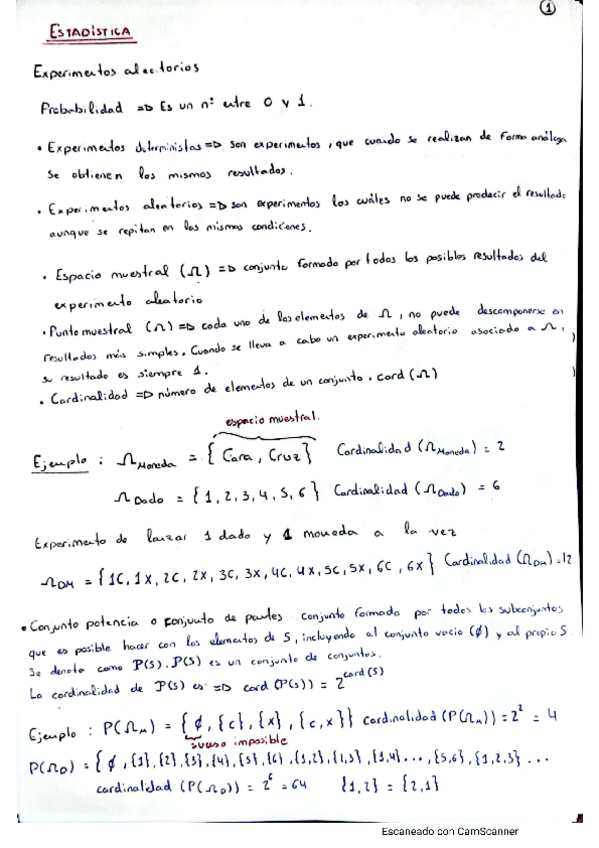 1
ESTADÍSTICA
Experimentos aleatorios
Probabilidad => Es un nº entre 0 y 1.
• Experimentos deterministas => son experimentos, que cuando se realizan de forma análoga
se obtienen los mismos resultados.
• Experimentos aleatorios => son experimentos los cuáles no se puede predecir el resultado
aunque se repitan en las mismas condiciones.
• Espacio muestral (Ω) => conjunto formado por todos los posibles resultados del
experimento aleatorio
• Punto muestral (Ω) => cada uno de los elementos de Ω, no puede descomponerse en
resultados más simples. Cuando se lleva a cabo un experimento aleatorio asociado a Ω,
su resultado es siempre 1.
• Cardinalidad => número de elementos de un conjunto. card (Ω)
espacio muestral.
Ejemplo: Ω Moneda = {Cara, Cruz} Cardinalidad (Ω Moneda) = 2
Ω Dado = {1, 2, 3, 4, 5, 6} Cardinalidad (Ω Dado) = 6
Experimento de lanzar 1 dado y 1 moneda a la vez
Ω DM = {1C, 1X, 2C, 2X, 3C, 3X, 4C, 4X, 5C, 5X, 6C, 6X} Cardinalidad (Ω DM) = 12
• Conjunto potencia o conjunto de partes conjunto formado por todos los subconjuntos
que es posible hacer con los elementos de S, incluyendo al conjunto vacío (∅) y al propio S
Se denota como P(S). P(S) es un conjunto de conjuntos.
La cardinalidad de P(S) es => card (P(S)) = 2^card(S)
Ejemplo: P(Ω M) = {∅, {c}, {x}, {c,x}} cardinalidad (P(Ω M)) = 2² = 4
suceso imposible
P(Ω D) = {∅, {1}, {2}, {3}, {4}, {5}, {6}, {1,2}, {1,3}, {1,4}..., {5,6}, {1,2,3} ...
cardinalidad (P(Ω D)) = 2⁶ = 64 {1,2} = {2,1}
Escaneado con CamScanner